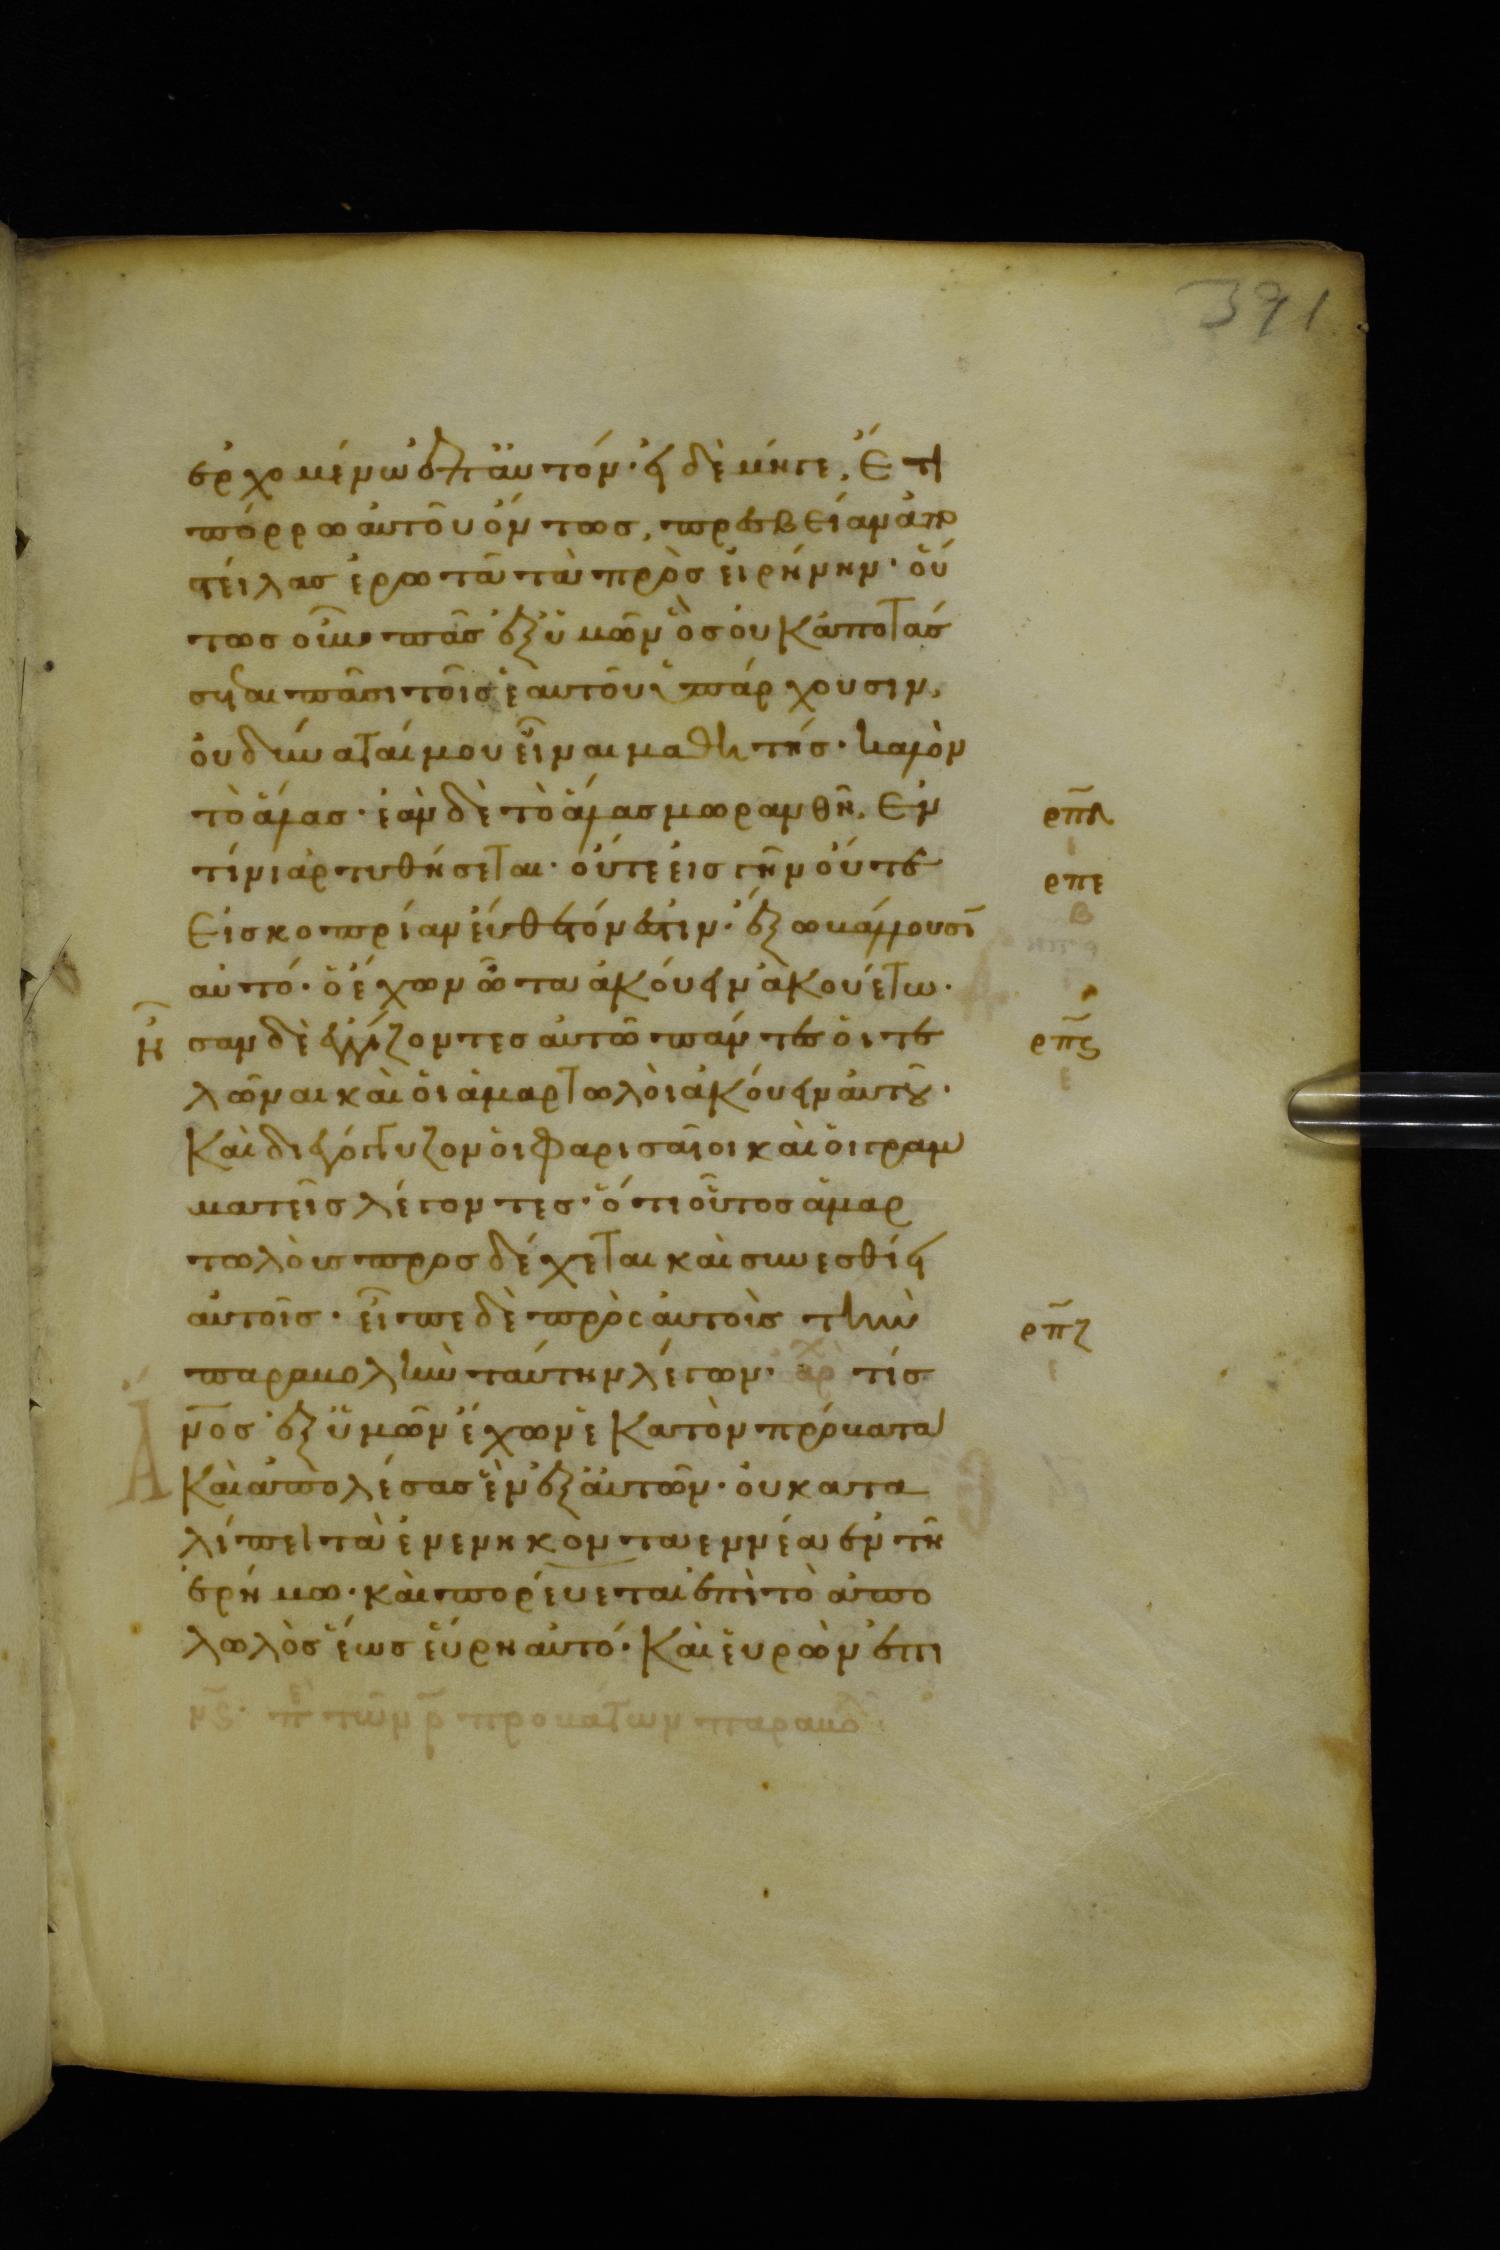 391
ἐρχομένω ἐπ αὐτόν· εἰ δὲ μήγε, ἔτι
πόρρω αὐτοῦ ὄντος, πρεσβείαν ἀπο
στείλας ἐρωτᾶ τὰ πρὸς εἰρήνην· οὕ
τως οὖν πᾶς ἐξ ὑμῶν ὃς οὐκ ἀποτάσ
σεται πᾶσι τοῖς ἑαυτοῦ ὑπάρχουσιν,
οὐ δύναταί μου εἶναι μαθητής· καλὸν
τὸ ἅλας· ἐὰν δὲ τὸ ἅλας μωρανθῆ, ἐν
ρπδ
τίνι ἀρτυθήσεται· οὔτε εἰς γῆν οὔτε
ρπε
εἰς κοπρίαν εὔθετόν ἐστιν· ἔξω βάλλουσῑ
αὐτό· ὁ ἔχων ὦτα ἀκούειν ἀκουέτω·
Ἦσαν δὲ ἐγγίζοντες αὐτῶ πάντες οἱ τε
ρπς
λῶναι καὶ οἱ ἁμαρτωλοὶ ἀκούειν αὐτοῦ·
Καὶ διεγόγγυζον οἱ φαρισαῖοι καὶ οἱ γραμ
ματεῖς λέγοντες· ὅτι οὗτος ἁμαρ
τωλοὺς προσδέχεται καὶ συνεσθίει
αὐτοῖς· εἶπε δὲ πρὸς αὐτοὺς τὴν
ρπζ
παραβολὴν ταύτην λέγων· τίς
ἄνος ἐξ ὑμῶν ἔχων ἑκατὸν πρόβατα
Καὶ ἀπολέσας ἓν ἐξ αὐτῶν· οὐ κατα
λίπει τὰ ἐνενηκονταεννέα ἐν τῆ
ἐρήμω· καὶ πορεύεται ἐπὶ τὸ ἀπο
λωλὸς ἕως εὕρη αὐτό· Καὶ εὑρὼν ἐπι
τῶν ρ προβάτων παραβο